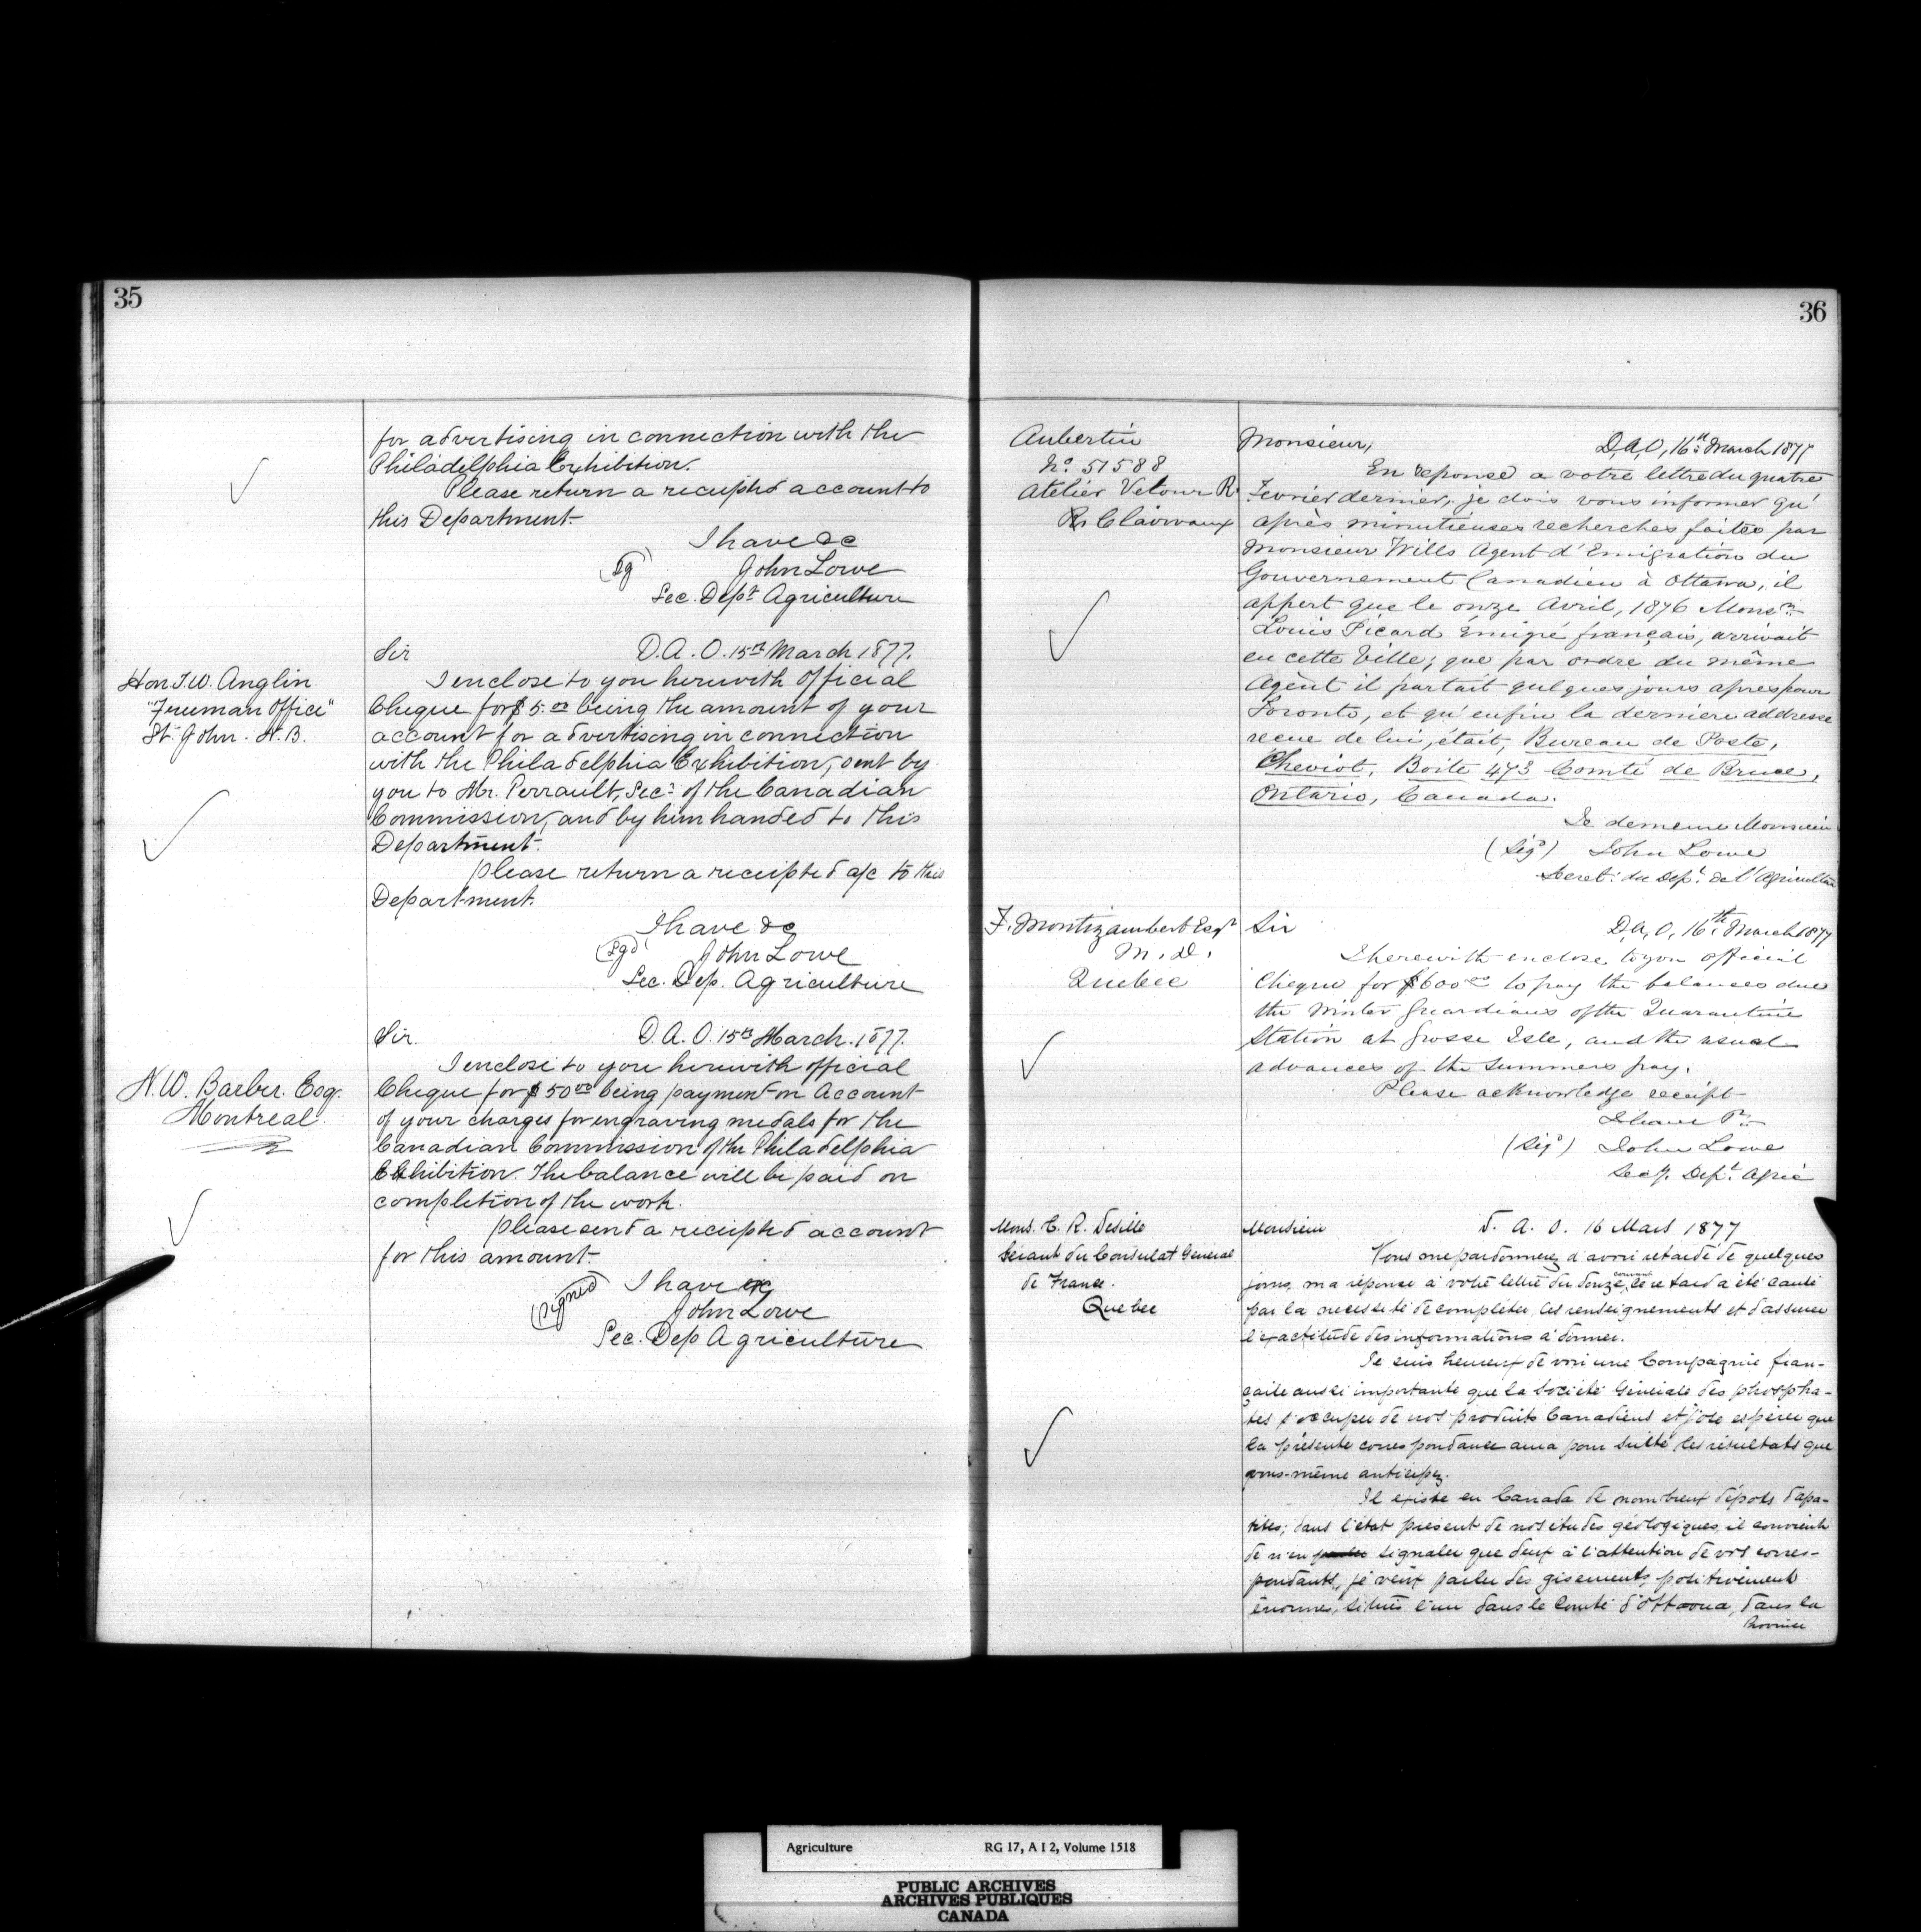 35
for advertising in connection with the
Philadelphia Exhibition.
Please return a receipted account to
this Department.
I have &c
(Sg) John Lowe
Sec. Dept Agriculture
Hon T.W. Anglin
"Freeman Office"
St. John. N.B.
Sir D.A.O. 15th March 1877.
I enclose to you herewith official
Cheque for $5.00 being the amount of your
account for advertising in connection
with the Philadelphia Exhibition, sent by
you to Mr. Perrault, Secy of the Canadian
Commission, and by him handed to this
Department.
Please return a receipted a/c to this
Department.
I have &c
(Sgd) John Lowe
Sec. Dep. Agriculture
N.W. Barber. Esq.
Montreal
Sir. D.A.O. 15th March. 1877.
I enclose to you herewith official
Cheque for $50.00 being payment on Account
of your charges for engraving medals for the
Canadian Commission of the Philadelphia
Exhibition. The balance will be paid on
completion of the work.
Please send a receipted account
for this amount.
I have &c
(Signed) John Lowe
Sec. Dep Agriculture
36
Aubertin
No. 51588
Atelier Velour R.
Clairvaux
Monsieur, D.A.O, 16th March 1877
En reponse a votre lettre du quatre
Fevrier dernier, je dois vous informer qu'
après minutieuses recherches faites par
Monsieur Wills Agent d'Emigration du
Gouvernement Canadien à Ottawa, il
appert que le onze Avril, 1876 Monsr
Louis Picard Émigré français, arrivait
en cette Ville; que par ordre du même
Agent il partait quelques jours apres pour
Toronto, et qu'enfin la derniere addresse
recue de lui, était, Bureau de Poste,
Cheviot, Boite 473 Comté de Bruce,
Ontario, Canada.
Je demeure Monsieur
(Sigd) John Lowe
Secret: du Dept. de l'Agriculture
F. Montizambert Esqr
M.D.
Quebec
Sir D.A.O, 16th March 1877
I herewith enclose to you official
Cheque for $600.00 to pay the balances due
the Winter Guardians of the Quarantine
Station at Grosse Isle, and the usual
advances of the Summers pay.
Please acknowledge receipt
I have
(Sigd) John Lowe
Secy. Dept. Agric
Mons. C. R.
Gérant du Consulat Général
de France.
Quebec
Monsieur D. A. O. 16 Mars 1877
Vous me pardonnerez d'avoir retardé de quelques
jours, ma réponse à votre lettre du douze courant, ce retard a été causé
par la necessité de compléter les renseignements et d'assurer
l'exactitude des informations à donner.
Je suis heureux de voir une Compagnie fran-
çaise aussi importante que la Société Générale des phospha-
tes s'occuper de nos produits Canadiens et j'ose espérer que
la présente correspondance aura pour suite les résultats que
vous-même anticipez.
Il existe en Canada de nombreux dépots d'apa-
tites; dans l'état présent de nos études géologiques, il convient
de n'en signaler que deux à l'attention de vos corres-
pondants, je veux parler des gisements, positivement
énormes, situés l'un dans le Comté d'Ottawa, dans la
Province
Agriculture RG 17, A I 2, Volume 1518
PUBLIC ARCHIVES
ARCHIVES PUBLIQUES
CANADA